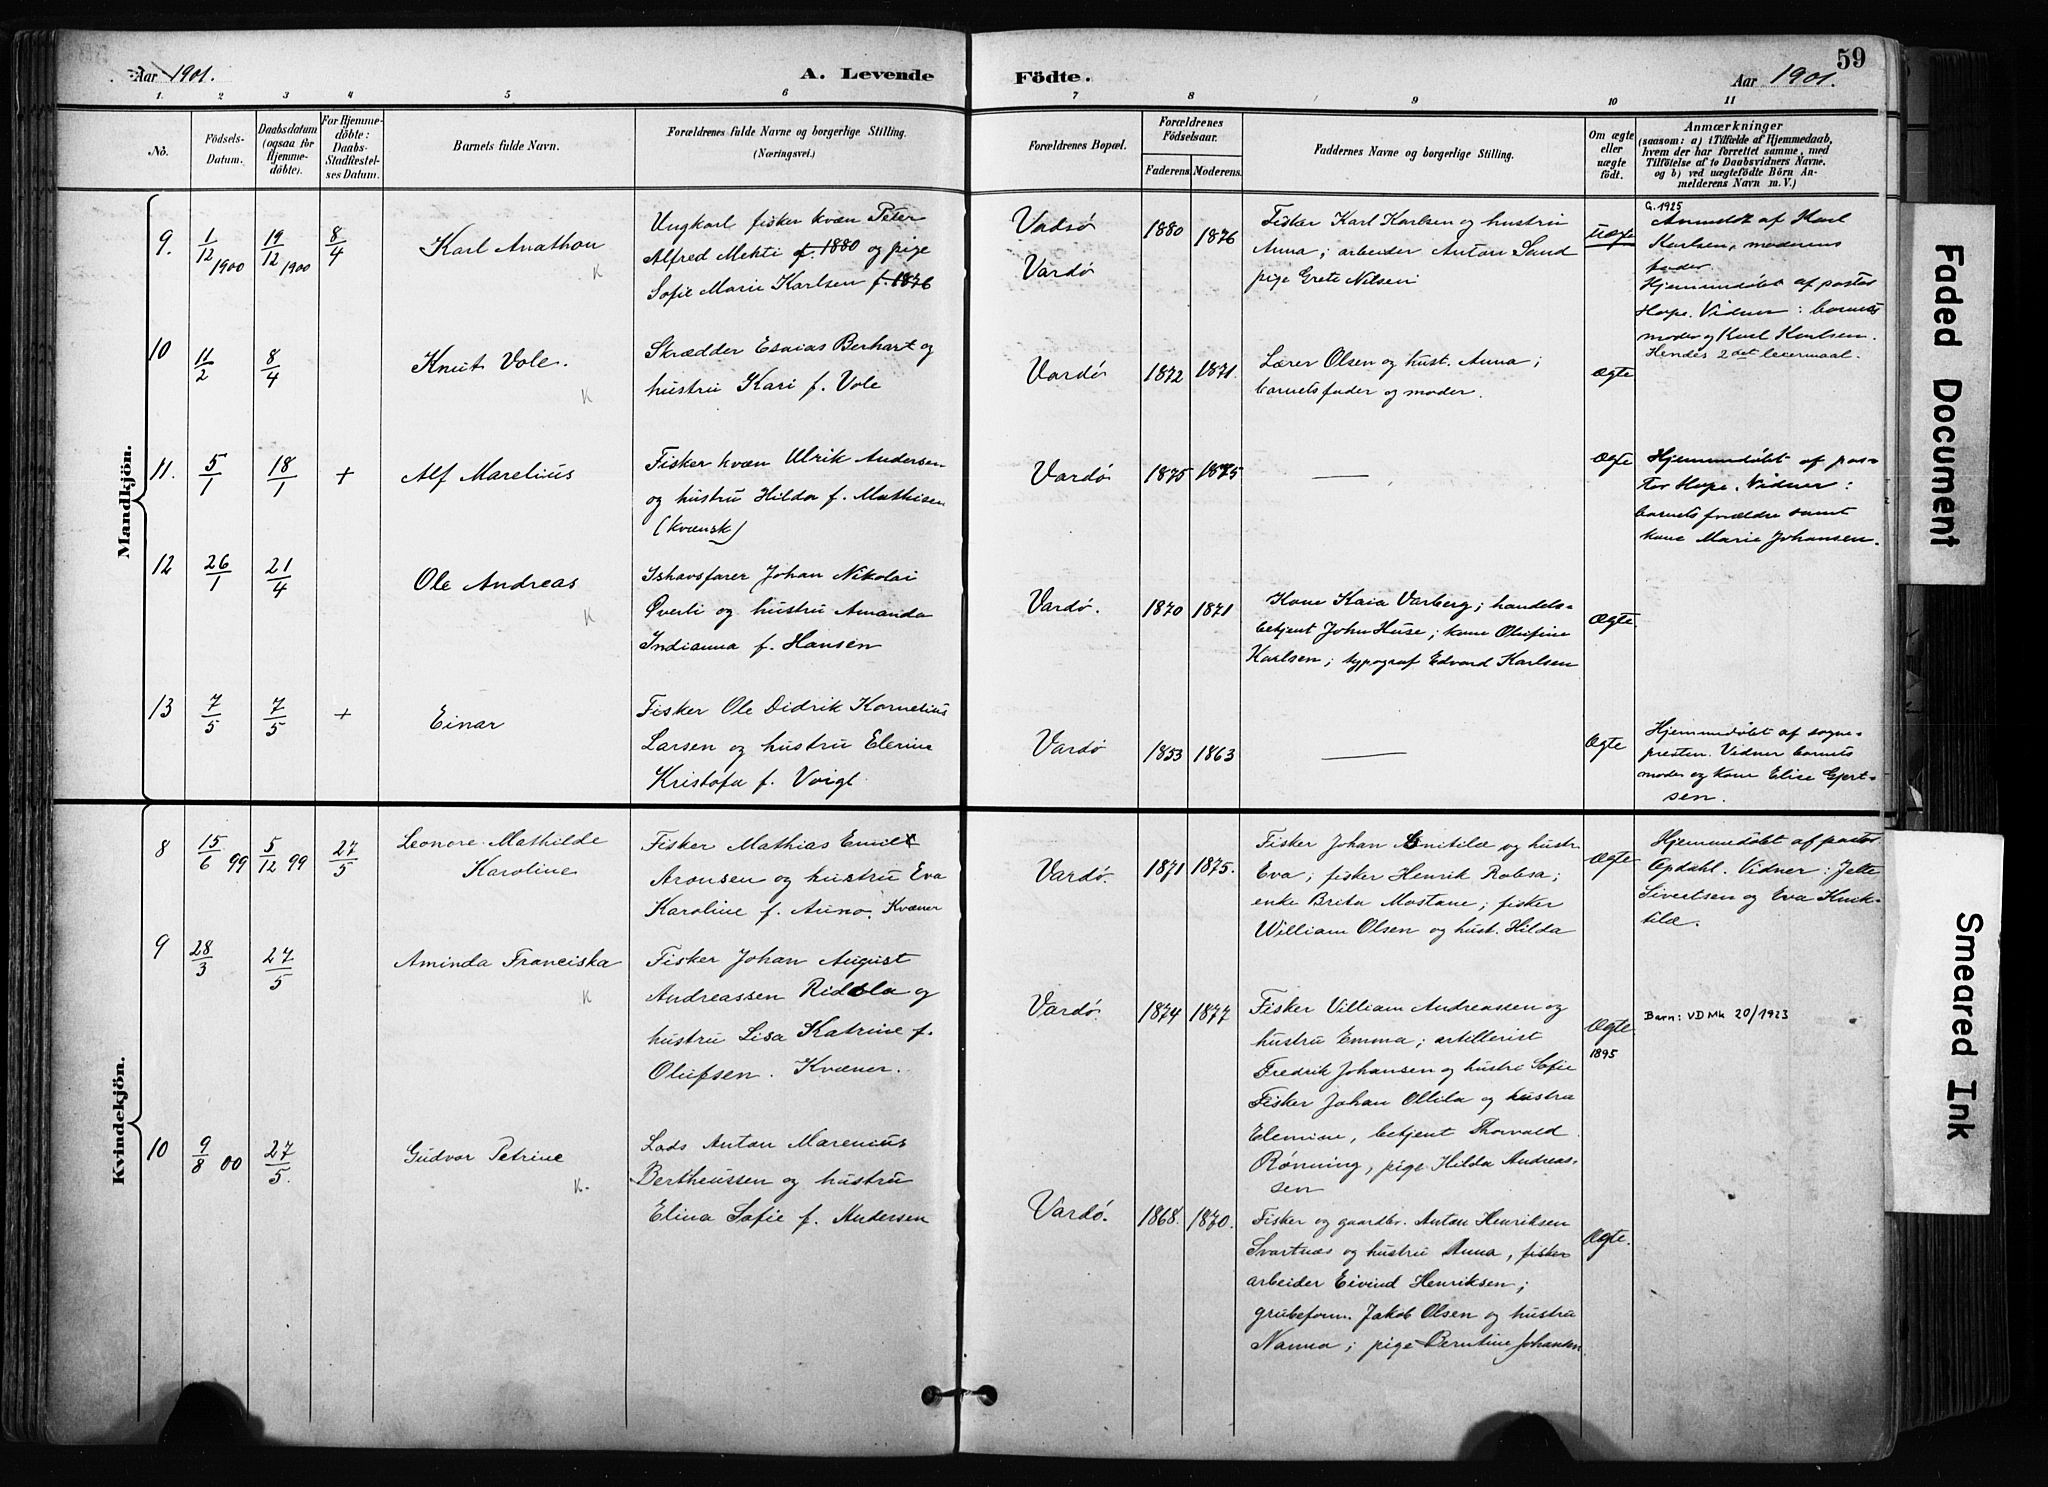 59
Aar 1901.
A. Levende Födte.
Aar 1901.
1. 2 3 4 5 6 7 8 9 10 11
No.
Födsels-Datum.
Daabsdatum (ogsaa for Hjemmedöbte).
For Hjemmedöbte: Daabs-Stadfæstelses Datum.
Barnets fulde Navn.
Forældrenes fulde Navne og borgerlige Stilling.
(Næringsvei.)
Forældrenes Bopæl.
Forældrenes Födselsaar.
Faderens. Moderens.
Faddernes Navne og borgerlige Stilling.
Om ægte eller uægte födt.
Anmærkninger
(saasom: a) i Tilfælde af Hjemmedaab,
hvem der har forrettet samme, med
Tilföielse af to Daabsvidners Navne,
og b) ved uægtefödte Börn Anmelderens Navn m. V.)
Mandkjön.
9. 1/12 1900 19/12 1900 8/4
Karl Anathon
K
Ungkarl fisker kvæn Peter
Alfred Mehti f. 1880 og pige
Sofie Marie Karlsen f. 1876
Vadsø
Vardø
1880 1876
Fisker Karl Karlsen og hustru
Anna; arbeider Anton Sand
pige Grete Nilsen
Uægte
G. 1925
Anmeldt af Karl
Karlsen, moderens
fader
Hjemmedøbt af pastor
Hope. Vidner: barnets
moder og Karl Karlsen.
Hendes 2det leiermaal.
10 11/2 8/4
Knut Vole.
K
Skrædder Esaias Berhart og
hustru Kari f. Vole
Vardø
1872 1871.
Lærer Olsen og hust. Anna;
barnets fader og moder.
Ægte
11. 5/1 18/1 +
Alf Marelius
Fisker kvæn Ulrik Andersen
og hustru Hilda f. Mathisen
(kvænsk)
Vardø
1875 1875
—
Ægte
Hjemmedøbt af pas-
tor Hope. Vidner:
barnets forældre samt
kone Marie Johansen.
12 26/1 21/4
Ole Andreas
K
Ishavsfarer Johan Nikolai
Øverli og hustru Amanda
Indianna f. Hansen
Vardø.
1870 1871
Kone Kaia Varberg; handels-
betjent John Huse; kone Olufine
Karlsen; typograf Edvard Karlsen
Ægte.
13 7/5 7/5 +
Einar
Fisker Ole Didrik Kornelius
Larsen og hustru Elerine
Kristofa f. Voigt.
Vardø
1853 1863
—
Ægte
Hjemmedøbt af sogne-
presten. Vidner barnets
moder og kone Elise Gjert-
sen.
Kvindekjön.
8 15/6 99 5/12 99 27/5
Leonore Mathilde
Karoline
Fisker Mathias Emil
Aronsen og hustru Eva
Karoline f. Auno. Kvæner
Vardø.
1871 1875.
Fisker Johan og hustr.
Eva; fisker Henrik Rolesa;
enke Brita Mostane; fisker
William Olsen og hust. Hilda
Ægte
Hjemmedøbt af pastor
Opdahl. Vidner: Jette
Sivertsen og Eva
9 28/3 27/5
Aminda Franciska
K
Fisker Johan August
Andreassen Ridola og
hustru Lisa Katrine f.
Olufsen. Kvæner.
Vardø.
1874 1877
Fisker Villiam Andreassen og
hustru Emma; artillerist
Fredrik Johansen og hustru Sofie
Fisker Johan Ollila og hustru
Elemine, betjent Thorvald
Rønning, pige Hilda Andreas-
sen
Ægte
1895
Barn: VD Mk 20/1923
10 9/8 00 27/5.
Gudvor Petrine
K.
Lods Anton Marenius
Bertheussen og hustru
Elina Sofie f. Andersen
Vardø.
1868. 1870.
Fisker og gaardbr. Anton Henriksen
Svartnæs og hustru Anna, fisker
arbeider Eivind Henriksen;
grubeform. Jakob Olsen og hustru
Nanna; pige Berntine Johansen
Ægte.
Faded Document
Smeared Ink